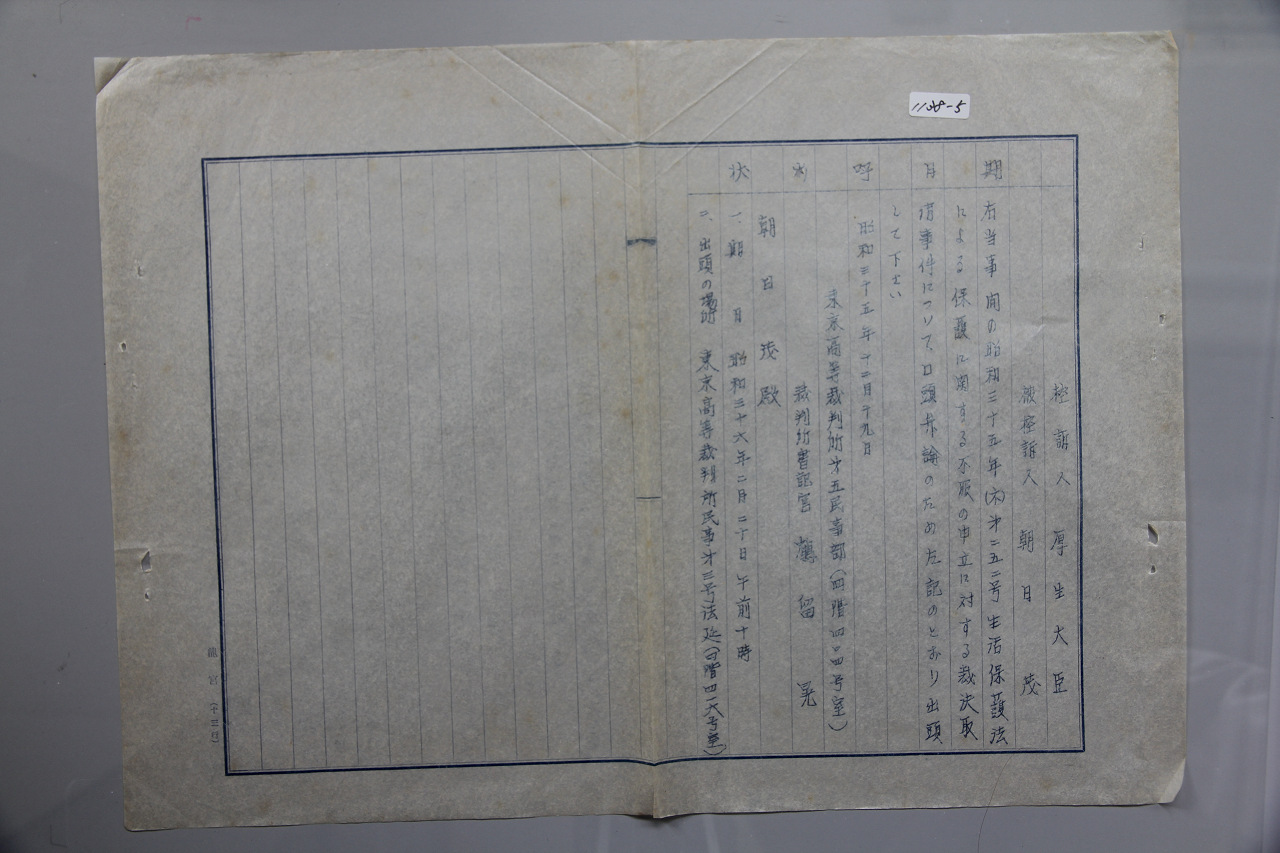 1108-5
期日呼出状
控訴人 厚生大臣
被控訴人 朝日茂
右当事間の昭和三十五年(ネ)第二五二号生活保護法
による保護に関する不服の申立に対する裁決取
消事件について口頭弁論のため左記のとおり出頭
して下さい
昭和三十五年十二月十九日
東京高等裁判所第五民事部(四階四〇四号室)
裁判所書記官 留晃
朝日茂殿
一、期日 昭和三十六年二月二十日午前十時
二、出頭の場所 東京高等裁判所民事第三号法廷(四階四一六号室)